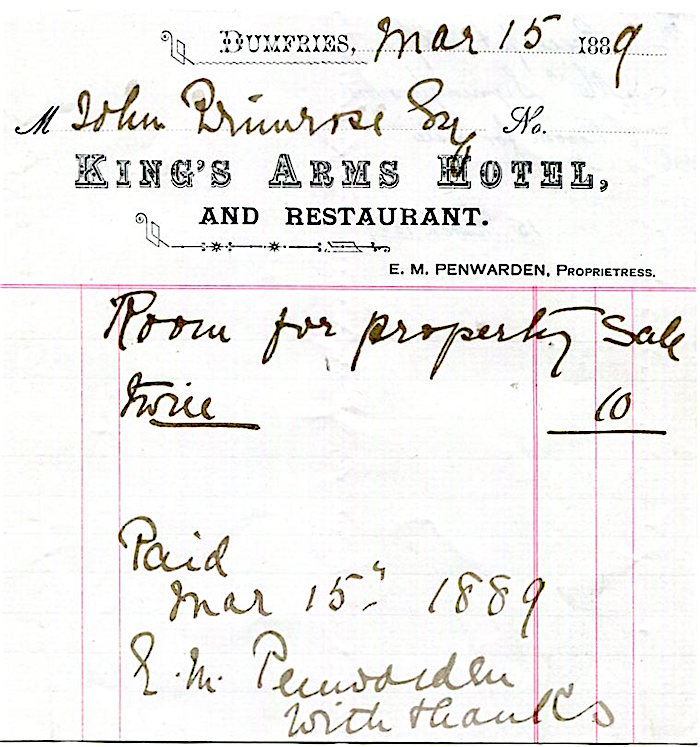 DUMFRIES, Mar 15 1889
M John Primrose Esq No.
KING'S ARMS HOTEL,
AND RESTAURANT.
E. M. PENWARDEN, PROPRIETRESS.
Room for property Sale
twice 10
Paid
Mar 15" 1889
E. M. Penwarden
With thanks